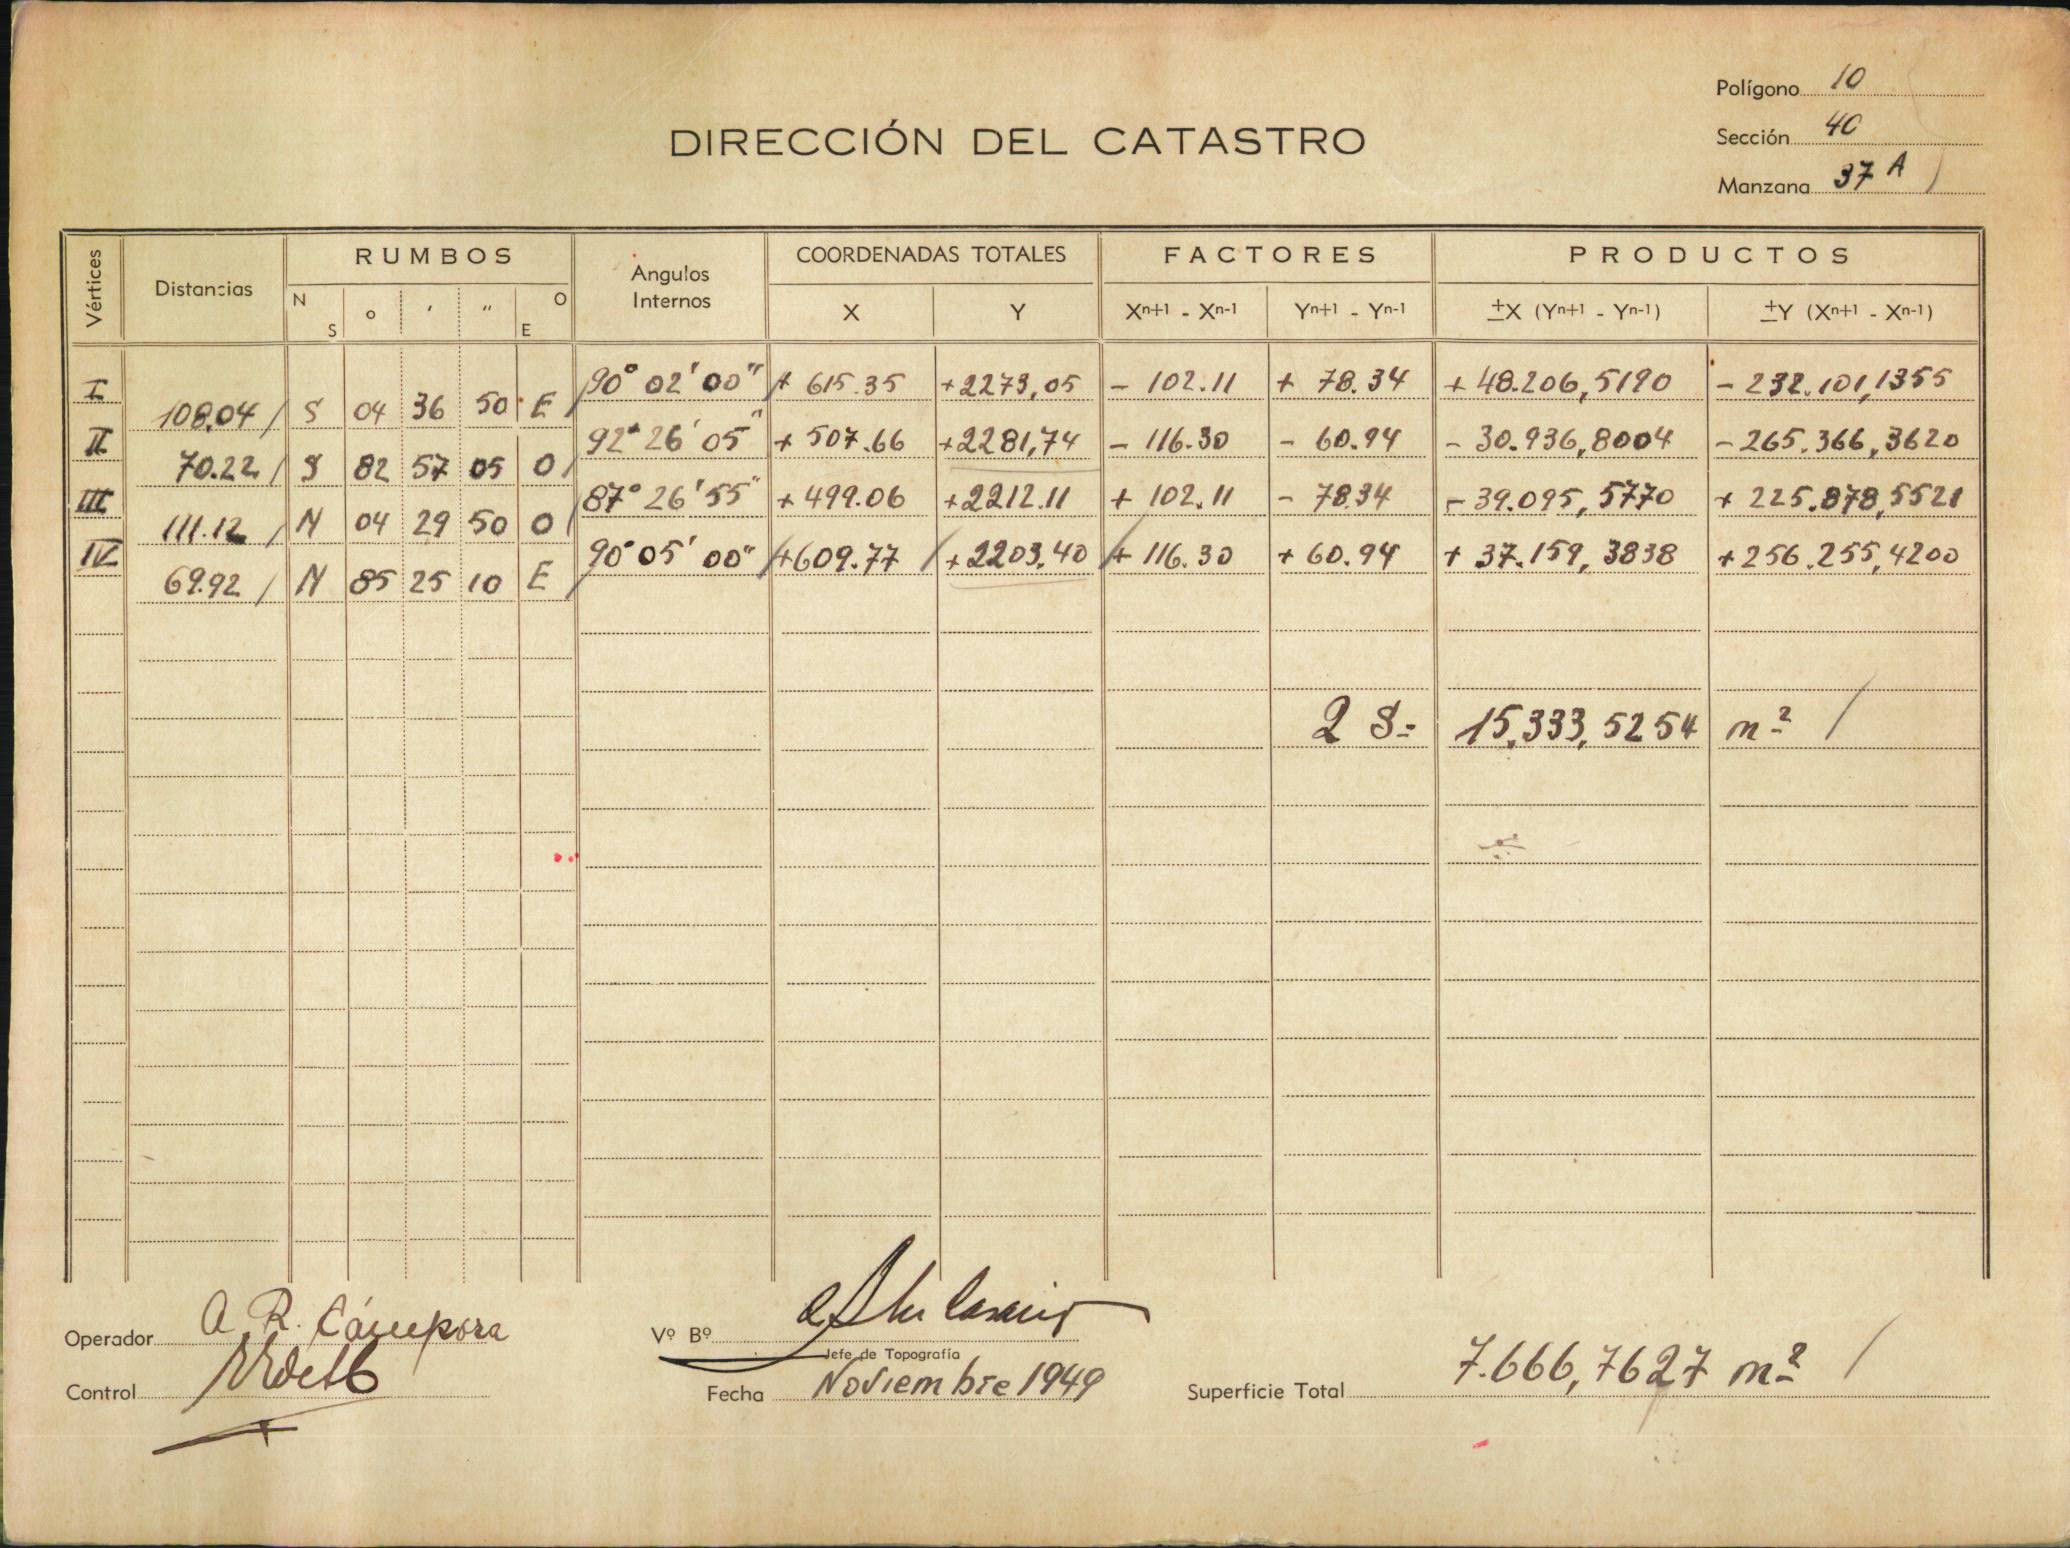 Polígono 10
DIRECCIÓN DEL CATASTRO
Sección 40
Manzana 37 A
Vértices Distancias RUMBOS Angulos Internos COORDENADAS TOTALES FACTORES PRODUCTOS
N S ° ′ ″ E O X Y Xⁿ⁺¹ - Xⁿ⁻¹ Yⁿ⁺¹ - Yⁿ⁻¹ ±X (Yⁿ⁺¹ - Yⁿ⁻¹) ±Y (Xⁿ⁺¹ - Xⁿ⁻¹)
I 90° 02' 00" + 615.35 +2273,05 - 102.11 + 78.34 + 48.206,5190 - 232.101,1355
108,04 / S 04 36 50 E
II 92° 26' 05" + 507.66 +2281,74 - 116.30 - 60.94 - 30.936,8004 - 265.366,3620
70.22 / S 82 57 05 O
III 87° 26' 55" + 499.06 +2212.11 + 102.11 - 78.34 - 39.095,5770 + 225.878,5521
111.12 / N 04 29 50 O
IV 90° 05' 00" +609.77 +2203.40 + 116.30 + 60.94 + 37.159,3838 + 256.255,4200
69.92 / N 85 25 10 E
2 S= 15.333,5254 m² /
Operador A. R. Cámpora
Vº Bº
Jefe de Topografía
Control
Fecha Noviembre 1949
Superficie Total 7.666,7627 m² /